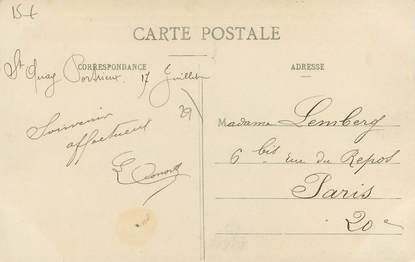 15€
CARTE POSTALE
CORRESPONDANCE
ADRESSE
St Quay Portrieux 17 Juillet
29
Souvenir
affectueux
Madame Lemberg
6 bis rue du Repos
Paris
20e